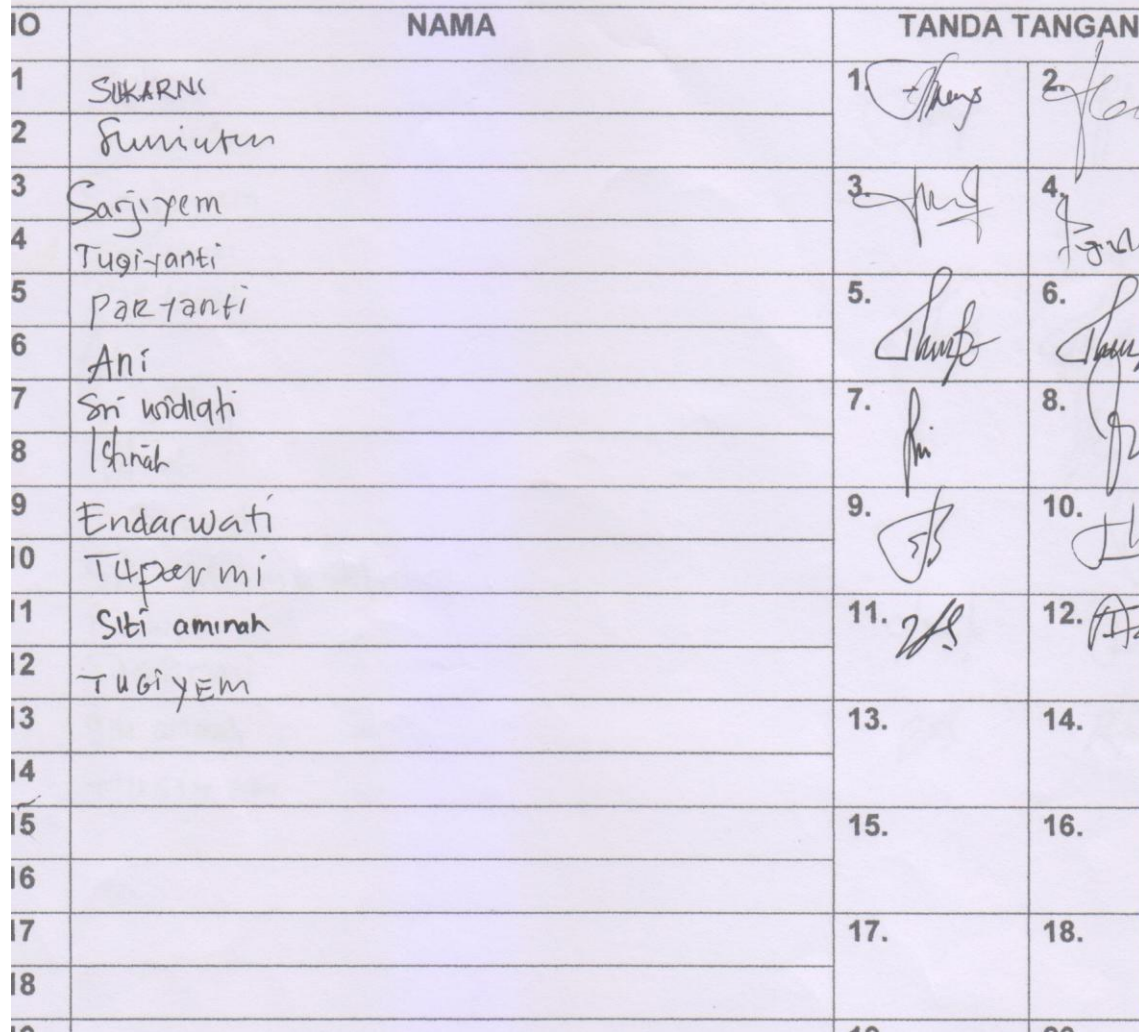 NO NAMA TANDA TANGAN
1 SUKARNI 1. 2.
2
3 Sarjiyem 3. 4.
4 Tugiyanti
5 Paryanti 5. 6.
6 Ani
7 Sri widiati 7. 8.
8 Isnnah
9 Endarwati 9. 10.
10 Tuparmi
11 Siti aminah 11. 12.
12 TUGIYEM
13 13. 14.
14
15 15. 16.
16
17 17. 18.
18